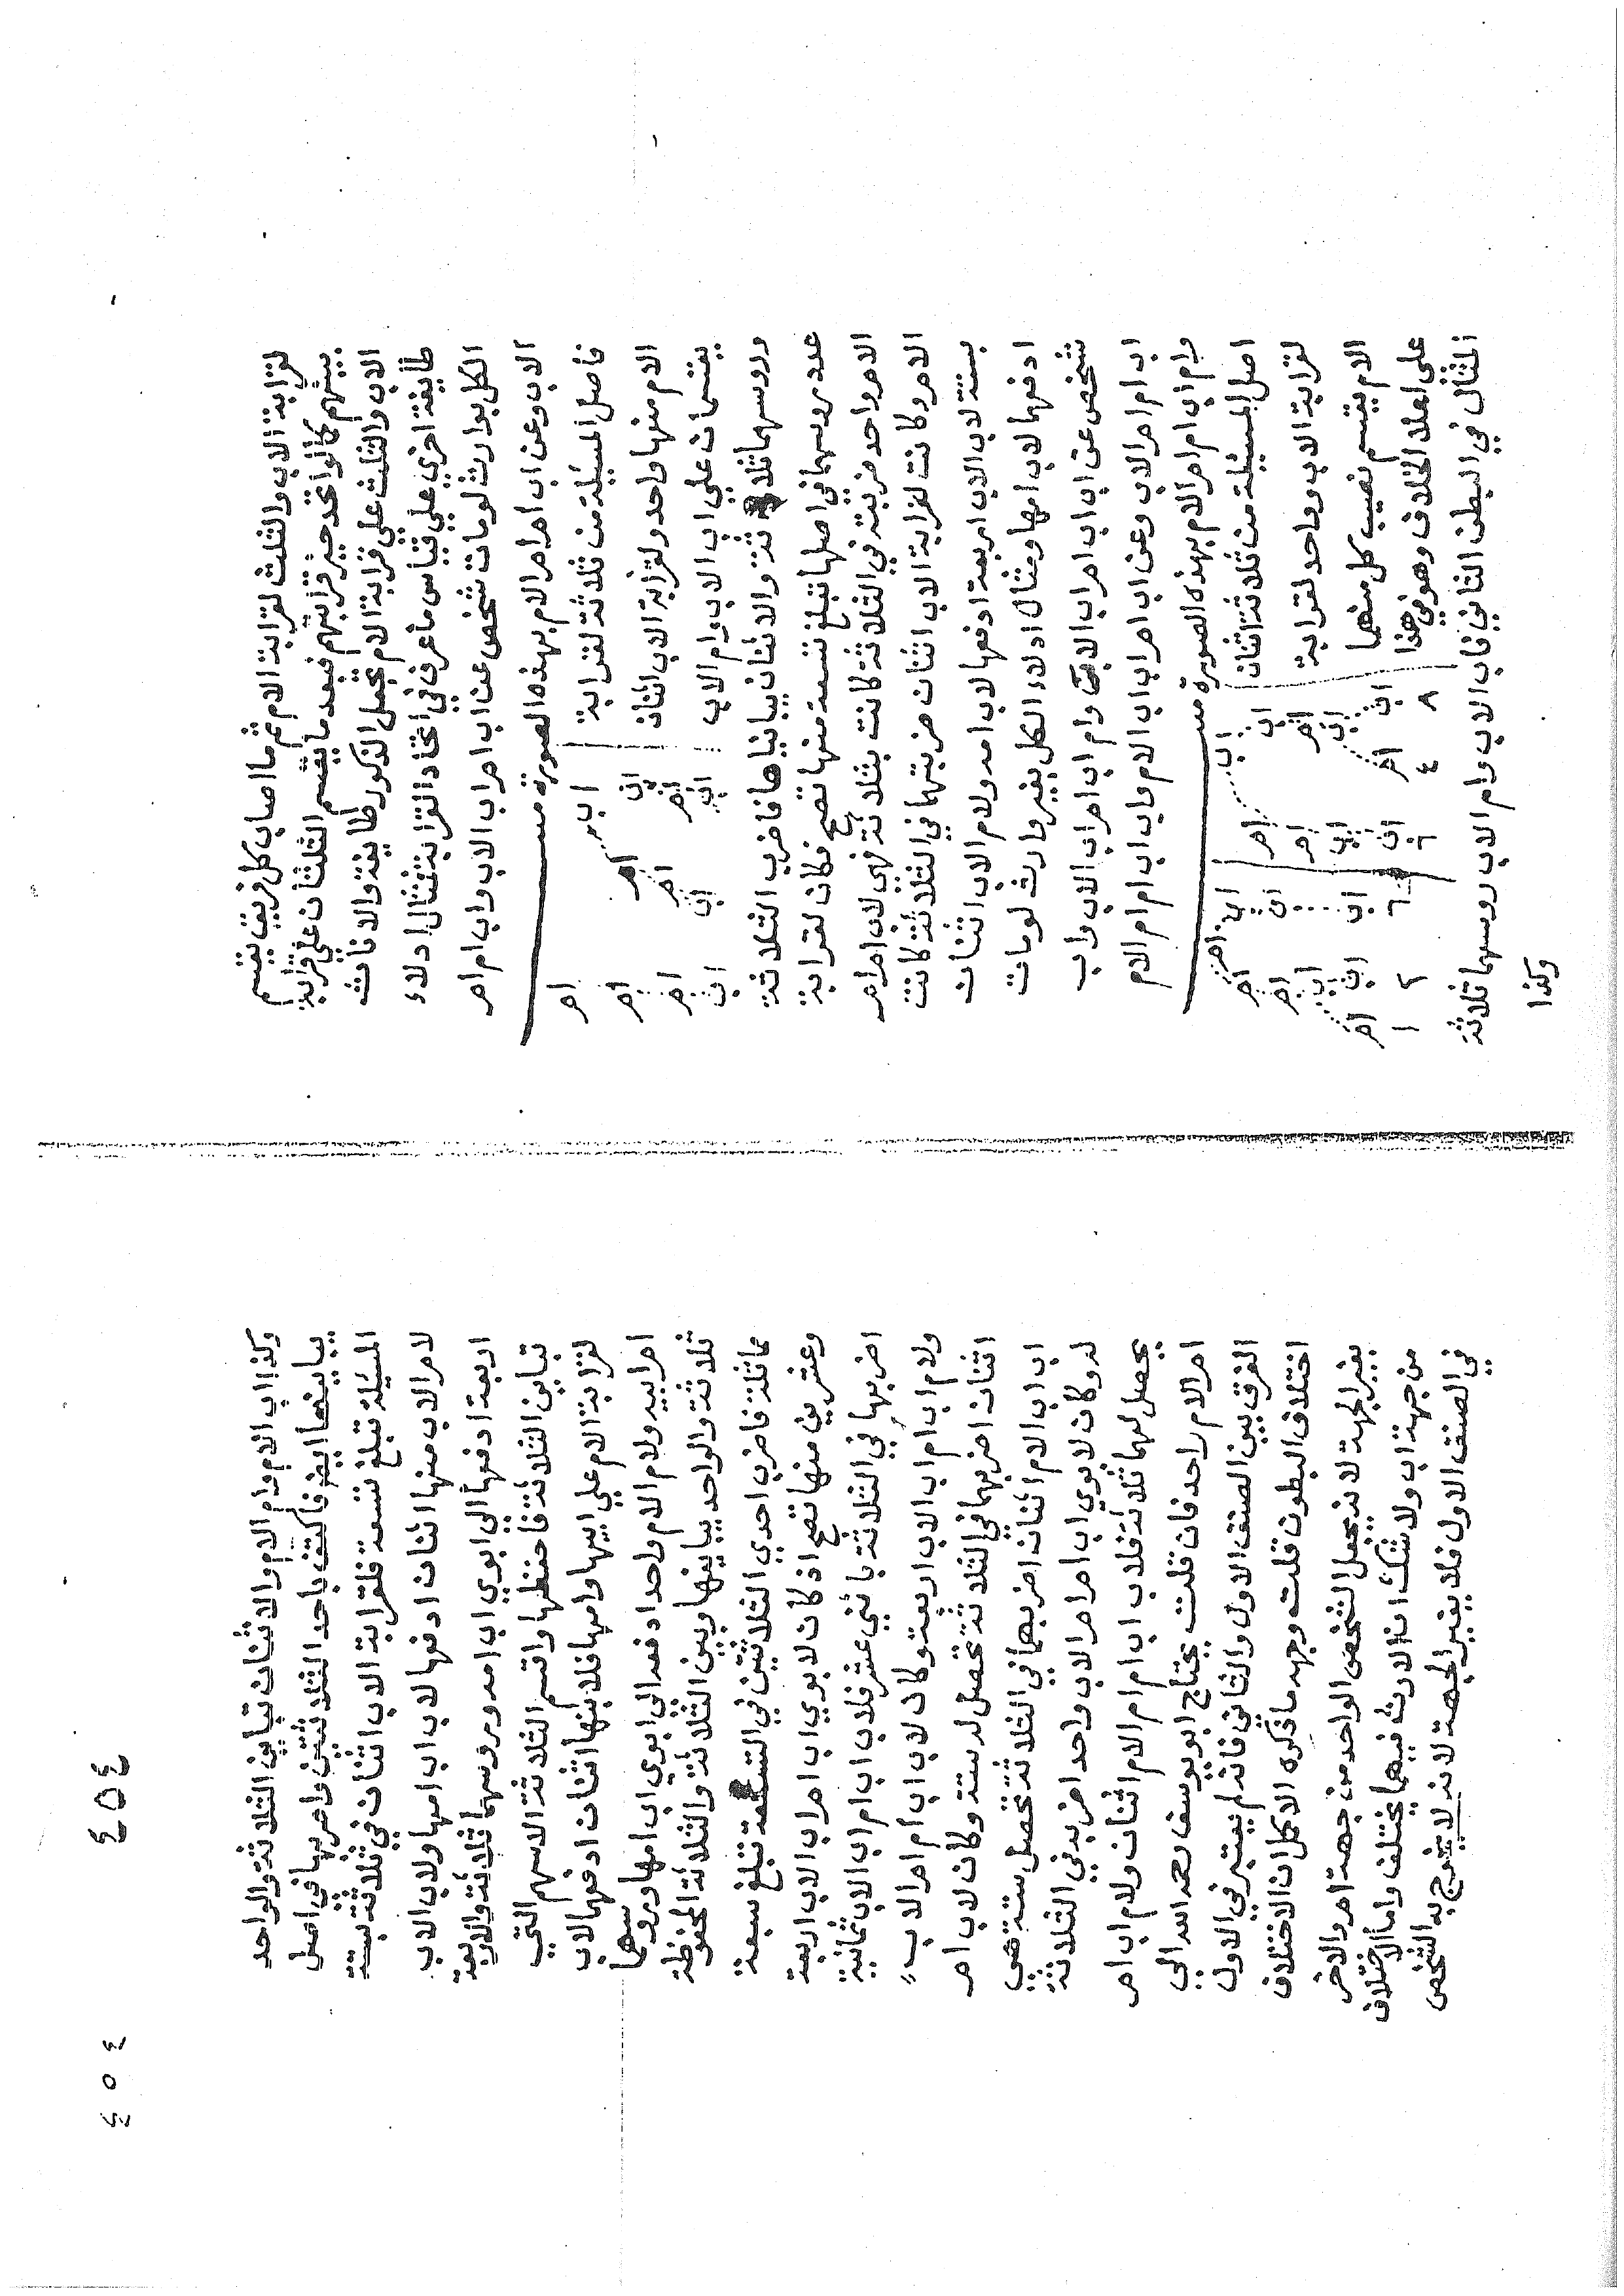 لقرابة الاب والثلث لقرابة الام ثم ما اصاب كل فريق يقسم
بينهم كما لو اتحد حيز قرابتهم فبعد ما يقسم الثلثان علي قرابة
الاب والثلث علي قرابة الام تجعل الذكور طايفة والاناث
طايفة اخري علي قياس ما عرف في اتحاد القرابة فمثال ادلاء
الكل بوارث لو مات شخص عن اب ام اب الاب واب ام ام
الاب وعن اب ام ام الام بهذه الصورة مســـ
فاصل المسيلة من ثلاثة لقرابة
الام منها واحد ولقرابة الاب اثنان
يقسمان علي اب الاب وام الاب
وروسهما ثلاثة والاثنان يباينانها فاضرب الثلاثة
عدد روسهما في اصلها تبلغ تسعة منها تصح فكان لقرابة
الام واحد ضربته في الثلاثة كانت بثلاثة فهي لاب ام ام
الام وكانت لقرابة الاب اثنان ضربتهما في الثلاثة كانت
بستة لاب الاب اربعة ادفعها لاب امه ولام الاب اثنان
ادفعهما لاب امها ومثال ادلاء الكل بغير وارث لو مات
شخص عن اب اب ام اب الاب وام اب ام اب الاب واب
اب ام ام الاب وعن اب ام اب اب الام واب اب ام ام الام
وام اب ام ام الام بهذه الصورة مســـ
اصل المسيلة من ثلاثة اثنان
لقرابة الاب وواحد لقرابة
الام يقسم نصيب كل منهما
علي اعلا الخلاف وهو في هذا
المثال في البطن الثاني فاب الاب وام الاب روسهما ثلاثة
وكذا
ام اب
ام ام اب
ام ام ام
اب اب اب
ام ام اب ام اب
ام اب ام اب
اب اب ام
ام اب اب ام اب
١ ٢ ٦ ٦ ٤ ٨
٤٥٤
٤٥٤
وكذا اب الام وام الام والاثنان تباين الثلاثة والواحد
يباينها ايضا فاكتف باحد الثلاثتين واضربها في اصل
المسيلة تبلغ تسعة فلقرابة الاب اثنان في ثلاثة بستة
لام الاب منها اثنان ادفعها لاب اب امها ولاب الاب
اربعة ادفعها الي ابوي اب امه وروسهما ثلاثة والاربعة
تباين الثلاثة فاحفظها واقسم الثلاثة الاسهم التي
لقرابة الام علي ابيها وامها فلابنها اثنان ادفعهما لاب
ام ابيه ولام الام واحد ادفعه الي ابوي اب امها وروسهما
ثلاثة والواحد يباينها وبين الثلاثة والثلاثة المحفوظة
مماثلة فاضرب احدي الثلاثتين في التسعة تبلغ سبعة
وعشرين منها تصح اذ كان لابوي اب ام اب الاب اربعة
اضربها في الثلاثة باثني عشر فلاب اب ام اب الاب ثمانية
ولام اب ام اب الاب اربعة وكان لاب اب ام ام الاب
اثنان اضربهما في الثلاثة تحصل له ستة وكان لاب ام
اب اب الام اثنان اضربهما في الثلاثة تحصل ستة هي
له وكان لابوي اب ام ام الاب واحد اضربه في الثلاثة
يحصل لهما ثلاثة فلاب اب ام ام الام اثنان ولام اب ام
ام الام واحد فان قلت يحتاج ابو يوسف رحمه الله الي
الفرق بين الصنف الاول والثاني فانه لم يعتبر في الاول
اختلاف البطون قلت وجهه ما ذكره الاكمل ان الاختلاف
بغير الجهة لانه يجعل الشخص الواحد من جهة ام والاخر
من جهة اب ولا شك ان الارث فيهما يختلف واما الاختلاف
في الصنف الاول فلا يغير الجهة لانه لا يخرج به الشخص